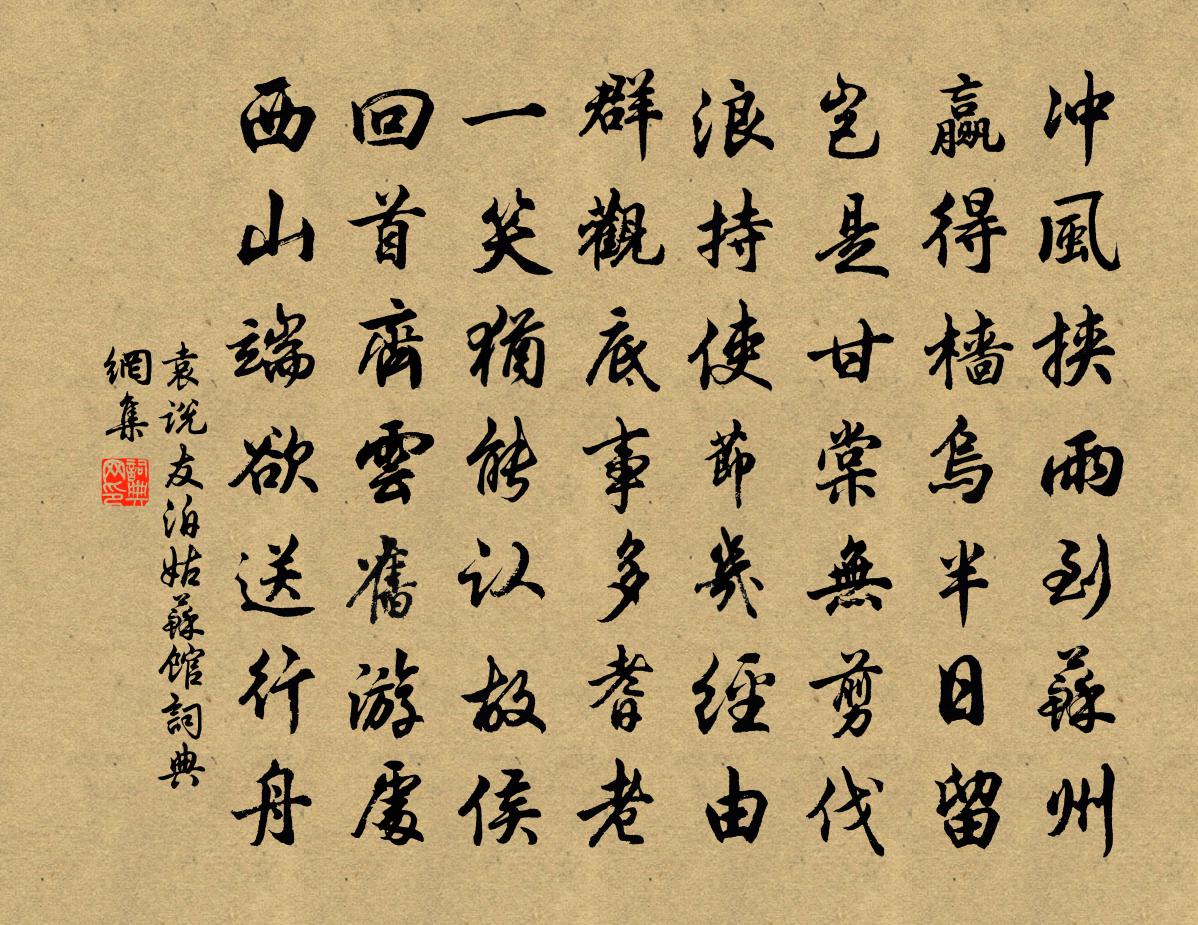 冲風挾雨到蘇州
贏得檣烏半日留
豈是甘棠無剪伐
浪持使節幾經由
群觀底事多耆老
一笑猶能认故侯
回首齊雲舊游處
西山端欲送行舟
袁说友泊姑蘇館詞典
網集
詞典网印